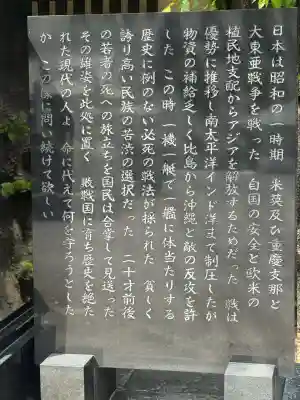 日本は昭和の一時期　米英及び重慶支那と
大東亜戦争を戦った　自国の安全と欧米の
植民地支配からアジアを解放するためだった　戦は
優勢に推移し南太平洋インド洋まで制圧したが
物資の補給乏しく比島から沖縄と敵の反攻を許
した　この時一機一艇で一艦に体当たりする
歴史に例のない必死の戦法が採られた　貧しく
誇り高い民族の苦渋の選択だった　二十才前後
の若者の死への旅立ちを国民は合掌して見送った
その雄姿を此処に置く　敗戦国に育ち歴史を絶た
れた現代の人よ　命に代えて何を守ろうとした
か　この像に問い続けて欲しい